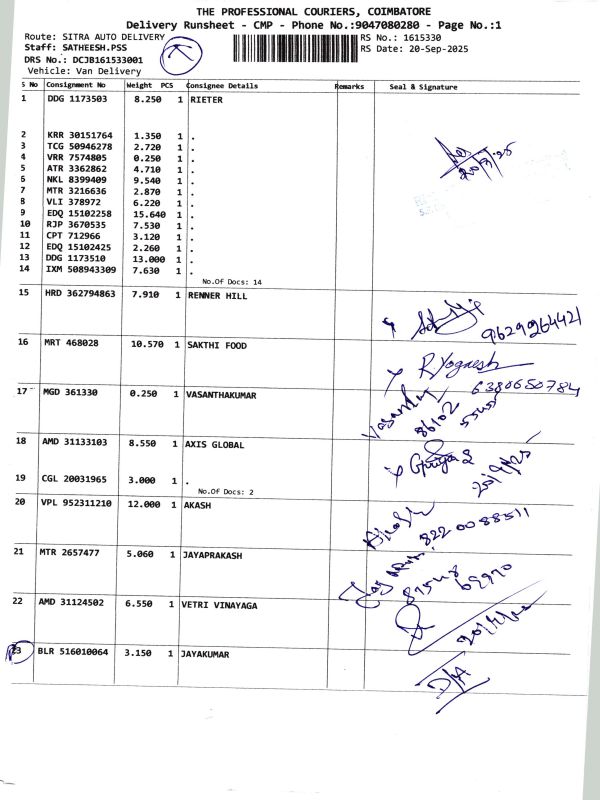 THE PROFESSIONAL COURIERS, COIMBATORE
Delivery Runsheet - CMP - Phone No.:9047080280 - Page No.:1
Route: SITRA AUTO DELIVERY
RS No.: 1615330
Staff: SATHEESH.PSS
RS Date: 20-Sep-2025
DRS No.: DCJB161533001
Vehicle: Van Delivery
S No Consignment No Weight PCS Consignee Details Remarks Seal & Signature
1 DDG 1173503 8.250 1 RIETER
2 KRR 30151764 1.350 1 .
3 TCG 50946278 2.720 1 .
4 VRR 7574805 0.250 1 .
5 ATR 3362862 4.710 1 .
6 NKL 8399409 9.540 1 .
7 MTR 3216636 2.870 1 .
8 VLI 378972 6.220 1 .
9 EDQ 15102258 15.640 1 .
10 RJP 3670535 7.530 1 .
11 CPT 712966 3.120 1 .
12 EDQ 15102425 2.260 1 .
13 DDG 1173510 13.000 1 .
14 IXM 508943309 7.630 1 .
No.Of Docs: 14
15 HRD 362794863 7.910 1 RENNER HILL
9629264421
16 MRT 468028 10.570 1 SAKTHI FOOD
R.Yognesh
6380650784
17 MGD 361330 0.250 1 VASANTHAKUMAR
86102
18 AMD 31133103 8.550 1 AXIS GLOBAL
19 CGL 20031965 3.000 1 .
No.Of Docs: 2
20 VPL 952311210 12.000 1 AKASH
8220088511
21 MTR 2657477 5.060 1 JAYAPRAKASH
22 AMD 31124502 6.550 1 VETRI VINAYAGA
23 BLR 516010064 3.150 1 JAYAKUMAR
D/A